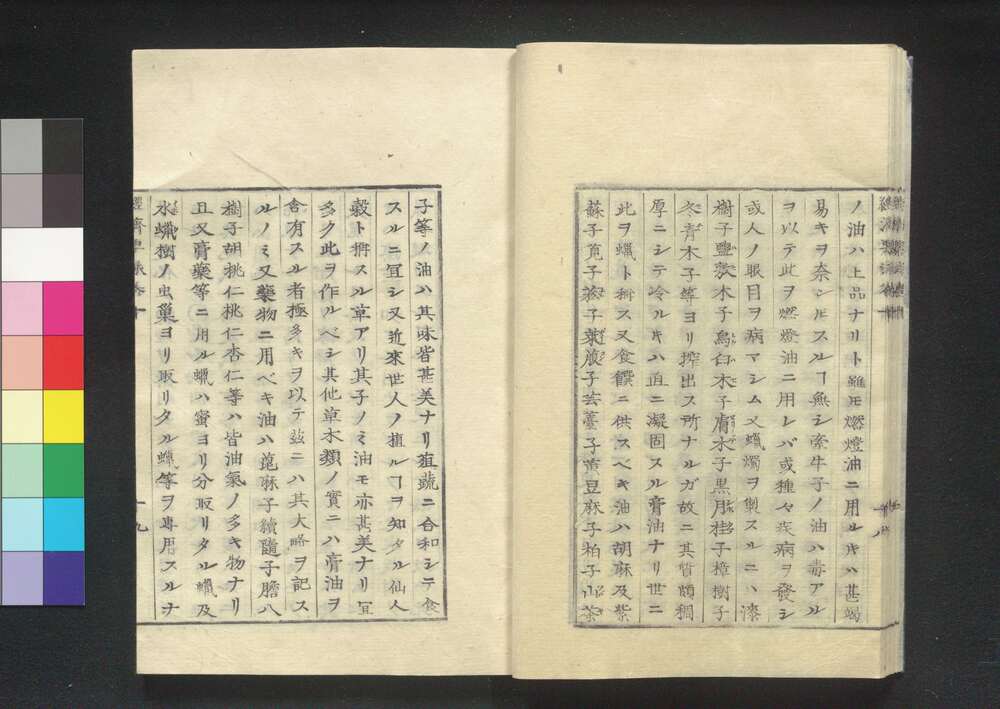 ノ油ハ上品ナリト雖モ燃燈油ニ用ルキハ甚竭
易キヲ奈ンレスルヿ無シ牽牛子ノ油ハ毒アル
ヲ以テ此ヲ燃燈油ニ用レバ或種々疾病ヲ發シ
或人ノ眼目ヲ病マシム又蠟燭ヲ製スルニハ漆
樹子鹽麩木子烏臼木子膚木子黒用桂子樟樹子
冬青木子等ヨリ搾出ス所ナルガ故ニ其質頗稠
厚ニシテ冷ルキハ直ニ凝固スル膏油ナリ世ニ
此ヲ蠟ト稱ス又食饌ニ供スベキ油ハ胡麻及紫
蘇子莧子 子 子芸薹子黄豆麻子栢子山茶
子等ノ油ハ其味皆甚美ナリ菹蔬ニ合和シテ食
スルニ冝シ又近來世人ノ植ルヿヲ知タル仙人
穀ト稱スル草アリ其子ノミ油モ亦甚美ナリ冝
多ク此ヲ作ルベシ其他草木類ノ實ニハ膏油ヲ
含有スル者極多キヲ以テ茲ニハ其大略ヲ記ス
ルノミ又藥物ニ用ベキ油ハ蓖麻子續隨子膽八
樹子胡桃仁桃仁杏仁等ハ皆油氣ノ多キ物ナリ
且又膏藥等ニ用ル蠟ハ蜜ヨリ分取リタル蠟及
水蠟樹ノ虫巢ヨリ取リタル蠟等ヲ專用スルナ
十九